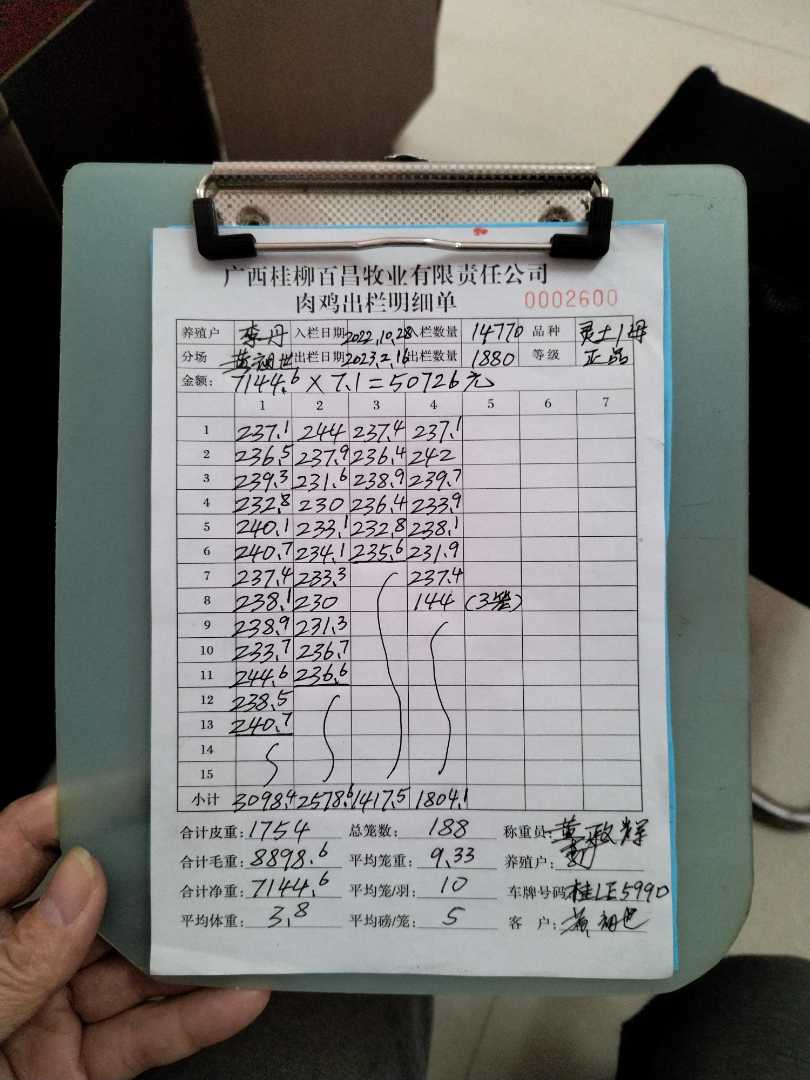 广西桂柳百昌牧业有限责任公司
肉鸡出栏明细单 0002600
养殖户 李丹 入栏日期 2022.10.28 入栏数量 14770 品种 灵土1号
分场 出栏日期 2023.2.16 出栏数量 1880 等级 正品
金额: 7144.6 × 7.1 = 50726元
1 2 3 4 5 6 7
1 237.1 244 237.4 237.1
2 236.5 237.9 236.4 242
3 239.3 231.6 238.9 239.7
4 232.8 230 236.4 233.9
5 240.1 233.1 232.8 238.1
6 240.7 234.1 235.6 231.9
7 237.4 233.3 237.4
8 238.1 230 144 (3笼)
9 238.9 231.3
10 233.7 236.7
11 244.6 236.6
12 238.5
13 240.7
14
15
小计 3098.4 2578.6 1417.5 1804.1
合计皮重: 1754 总笼数: 188 称重员: 黄政辉
合计毛重: 8898.6 平均笼重: 9.33 养殖户:
合计净重: 7144.6 平均笼/羽: 10 车牌号码: 桂LE5990
平均体重: 3.8 平均磅/笼: 5 客户: